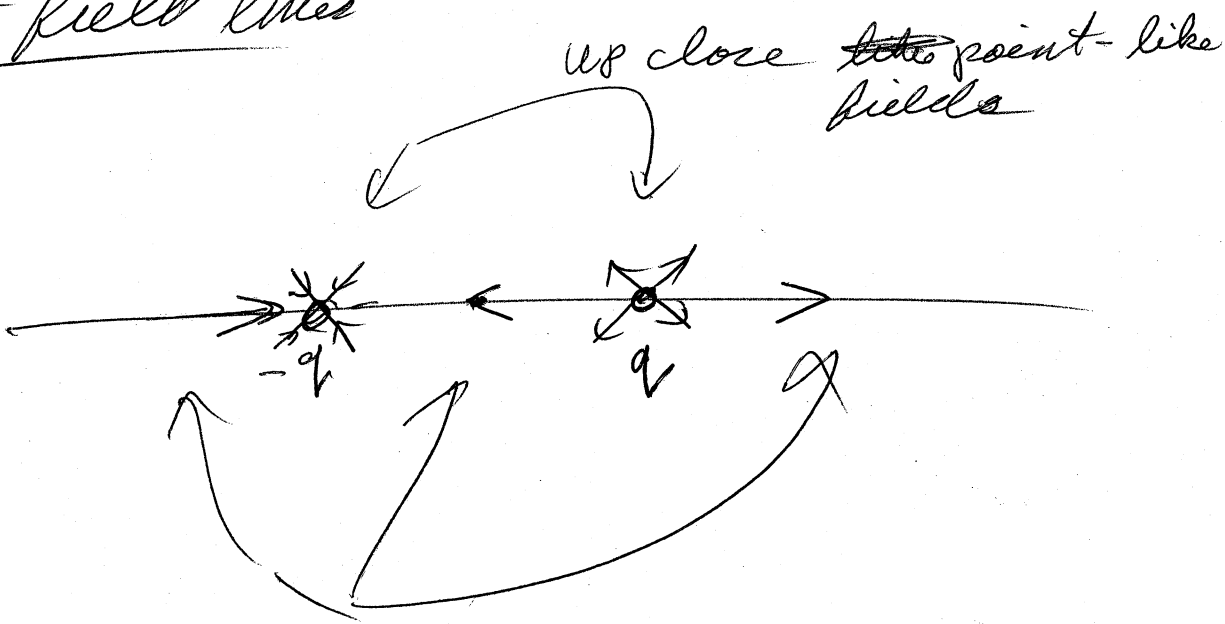 - field lines
up close point-like
fields
-q
q